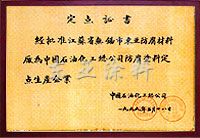 定点证书
经批准江苏省无锡市东亚防腐材料
厂为中国石油化工总公司防腐资料定
点生产企业
中国石油化工总公司